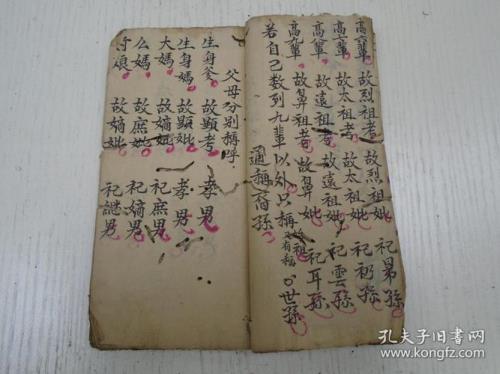 高六輩 故烈祖考 故烈祖妣 祀晜孫
高七輩 故太祖考 故太祖妣 祀礽孫
高八輩 故遠祖考 故遠祖妣 祀雲孫
高九輩 故鼻祖考 故鼻妣 祀耳孫
若自己数列九輩以外只稱故祖又有稱〇世孫
通稱裔孫
父母分别稱呼
生身爹 故顯考 孝男
生身媽 故顯妣 孝男
大媽 故嫡妣 祀庶男
么媽 故庶妣 祀嫡男
娘 故嫡妣 祀継男
孔夫子旧书网
www.kongfz.com